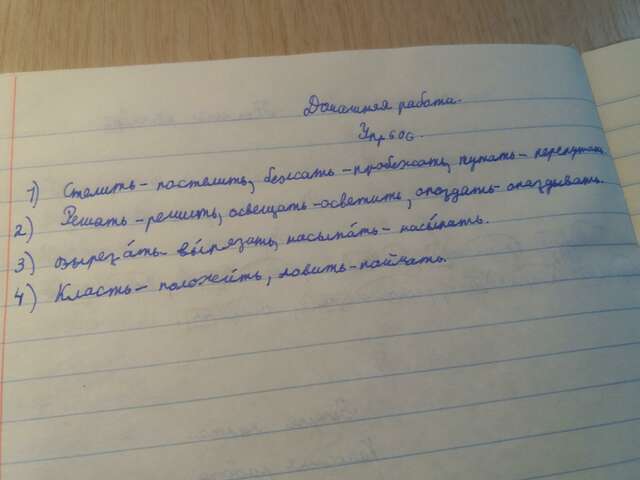 Домашняя работа.
Упр 606.
1) Стелить - постелить, бежать - пробежать, путать - перепутать.
2) Решать - решить, освещать - осветить, опоздать - опаздывать.
3) вырезáть - вы́рязать, насыпáть - насы́пать.
4) Класть - положи́ть, ловить - поймать.